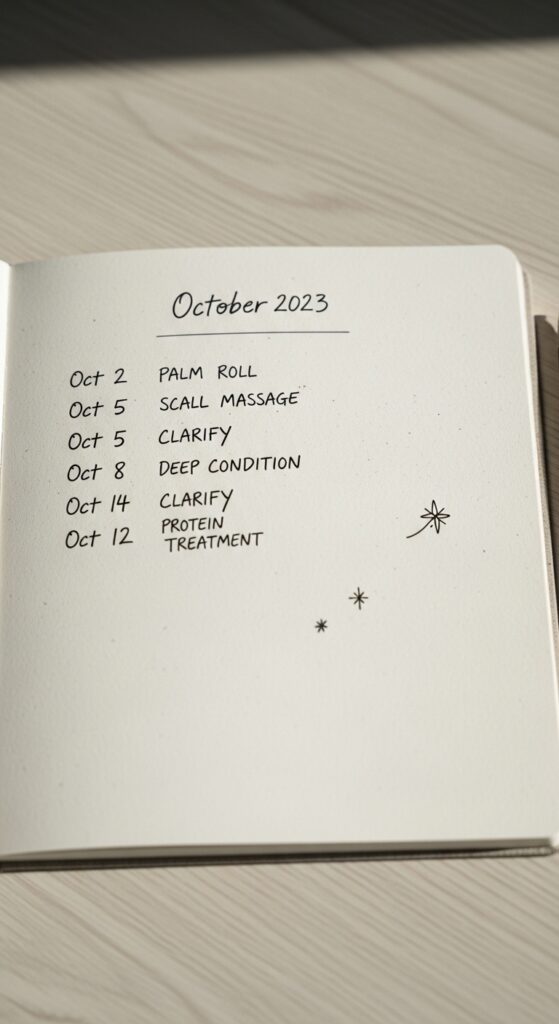 October 2023
Oct 2 PALM ROLL
Oct 5 SCALL MASSAGE
Oct 5 CLARIFY
Oct 8 DEEP CONDITION
Oct 14 CLARIFY
Oct 12 PROTEIN
TREATMENT